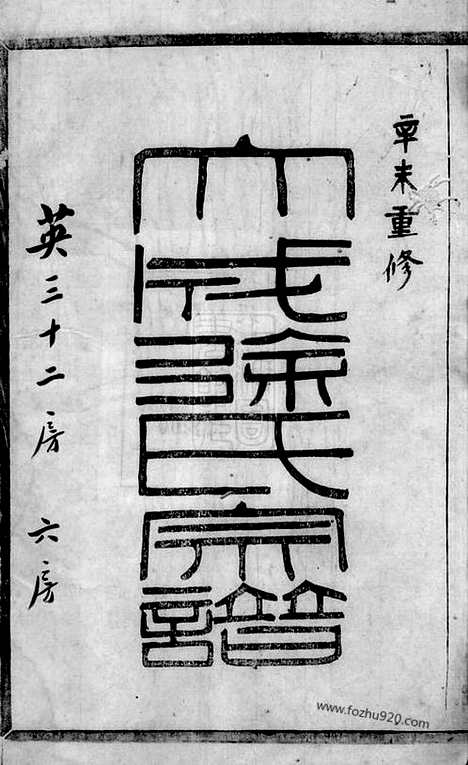 辛未重修
大成徐氏宗譜
英三十二房 六房
www.fozhu920.com